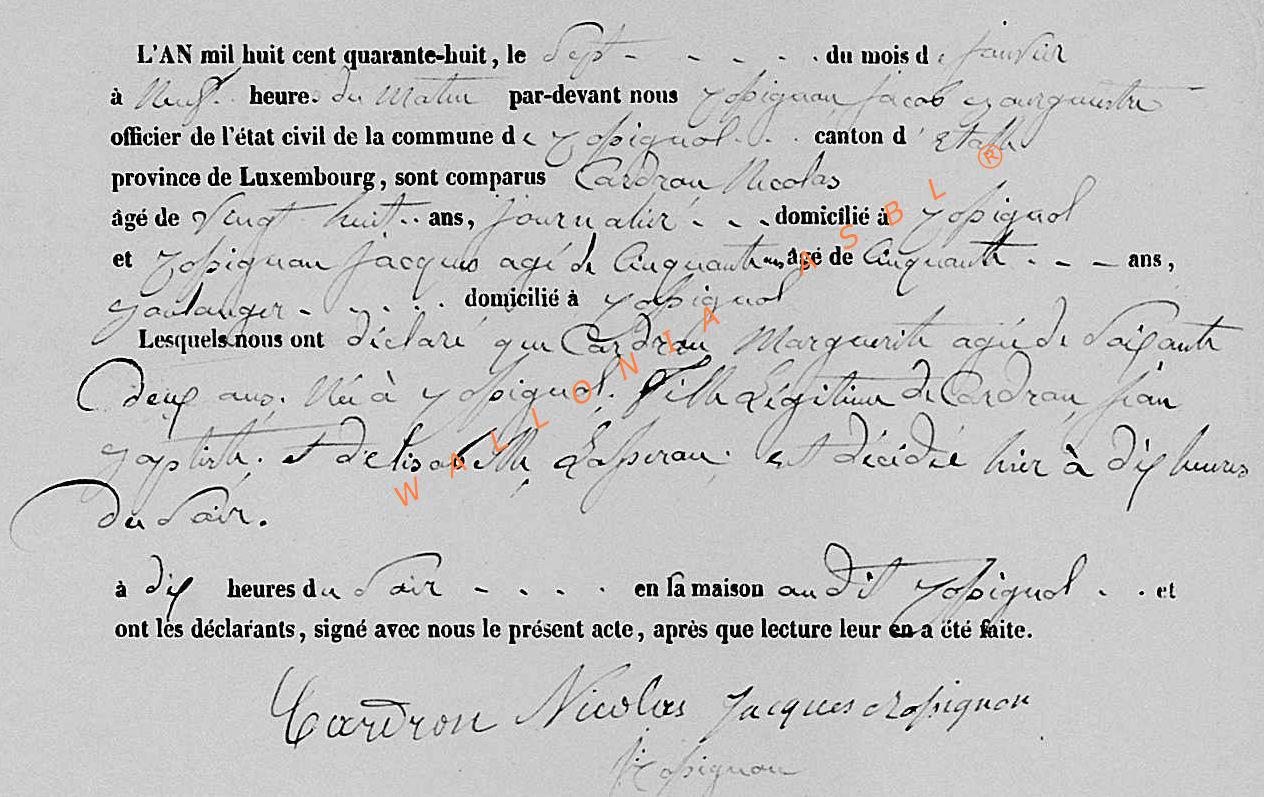 L'AN mil huit cent quarante-huit, le Sept du mois de Janvier
à Neuf heure. du Matin par-devant nous Rossignon Jacob Bourgmestre
officier de l'état civil de la commune de Rossignol canton d' Etalle
province de Luxembourg, sont comparus Cardron Nicolas
âgé de Vingt huit ans, journalier domicilié à Rossignol
et Rossignon Jacques agé de Cinquante ans âgé de Cinquante ans,
Boulanger domicilié à Rossignol
Lesquels nous ont déclaré que Cardron Marguerite agée de Soixante
deux ans. Née à Rossignol. Fille Légitime de Cardron Jean
Baptiste. et d'elisabeth est décédée hier à dix heures
du Soir.
à dix heures du Soir en sa maison au dit Rossignol et
ont les déclarants, signé avec nous le présent acte, après que lecture leur en a été faite.
Cardron Nicolas Jacques Rossignon
Rossignon
WALLONIA ASBL ®